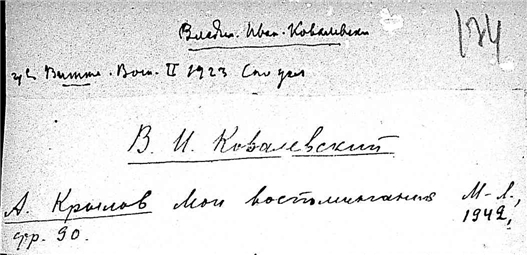 Владим. Иван. Ковалевски
134
Витте. Восп. II 1923
В. И. Ковалевский
А. Крылов Мои воспоминания М-Л.,
1942,
стр. 90.